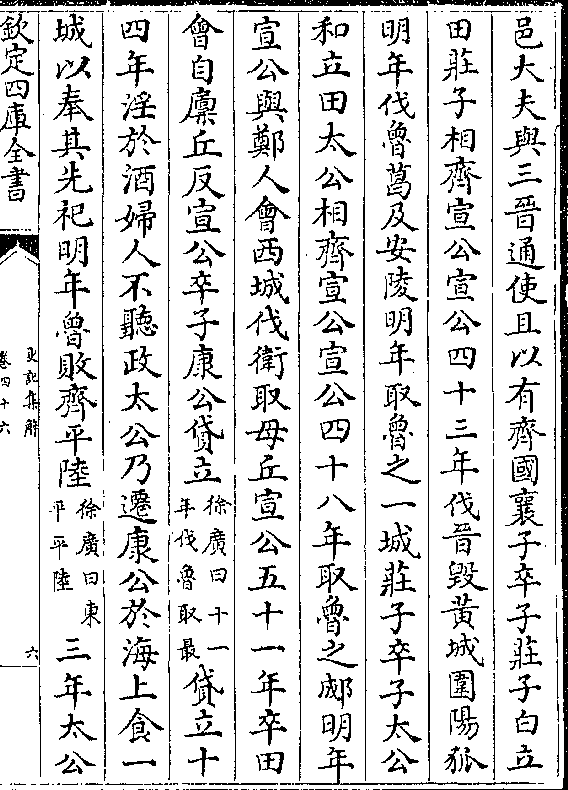 邑大夫與三晉通使且以有齊國襄子卒子莊子白立
田莊子相齊宣公宣公四十三年伐晉毀黃城圍陽狐
明年伐魯葛及安陵明年取魯之一城莊子卒子太公
和立田太公相齊宣公宣公四十八年取魯之郕明年
宣公與鄭人會西城伐衛取毋丘宣公五十一年卒田
會自廩丘反宣公卒子康公貸立徐廣曰十一年伐魯取最貸立十
四年淫於酒婦人不聽政太公乃遷康公於海上食一
城以奉其先祀明年魯敗齊平陸徐廣曰東平平陸三年太公
欽定四庫全書
史記集解
卷四十六
六